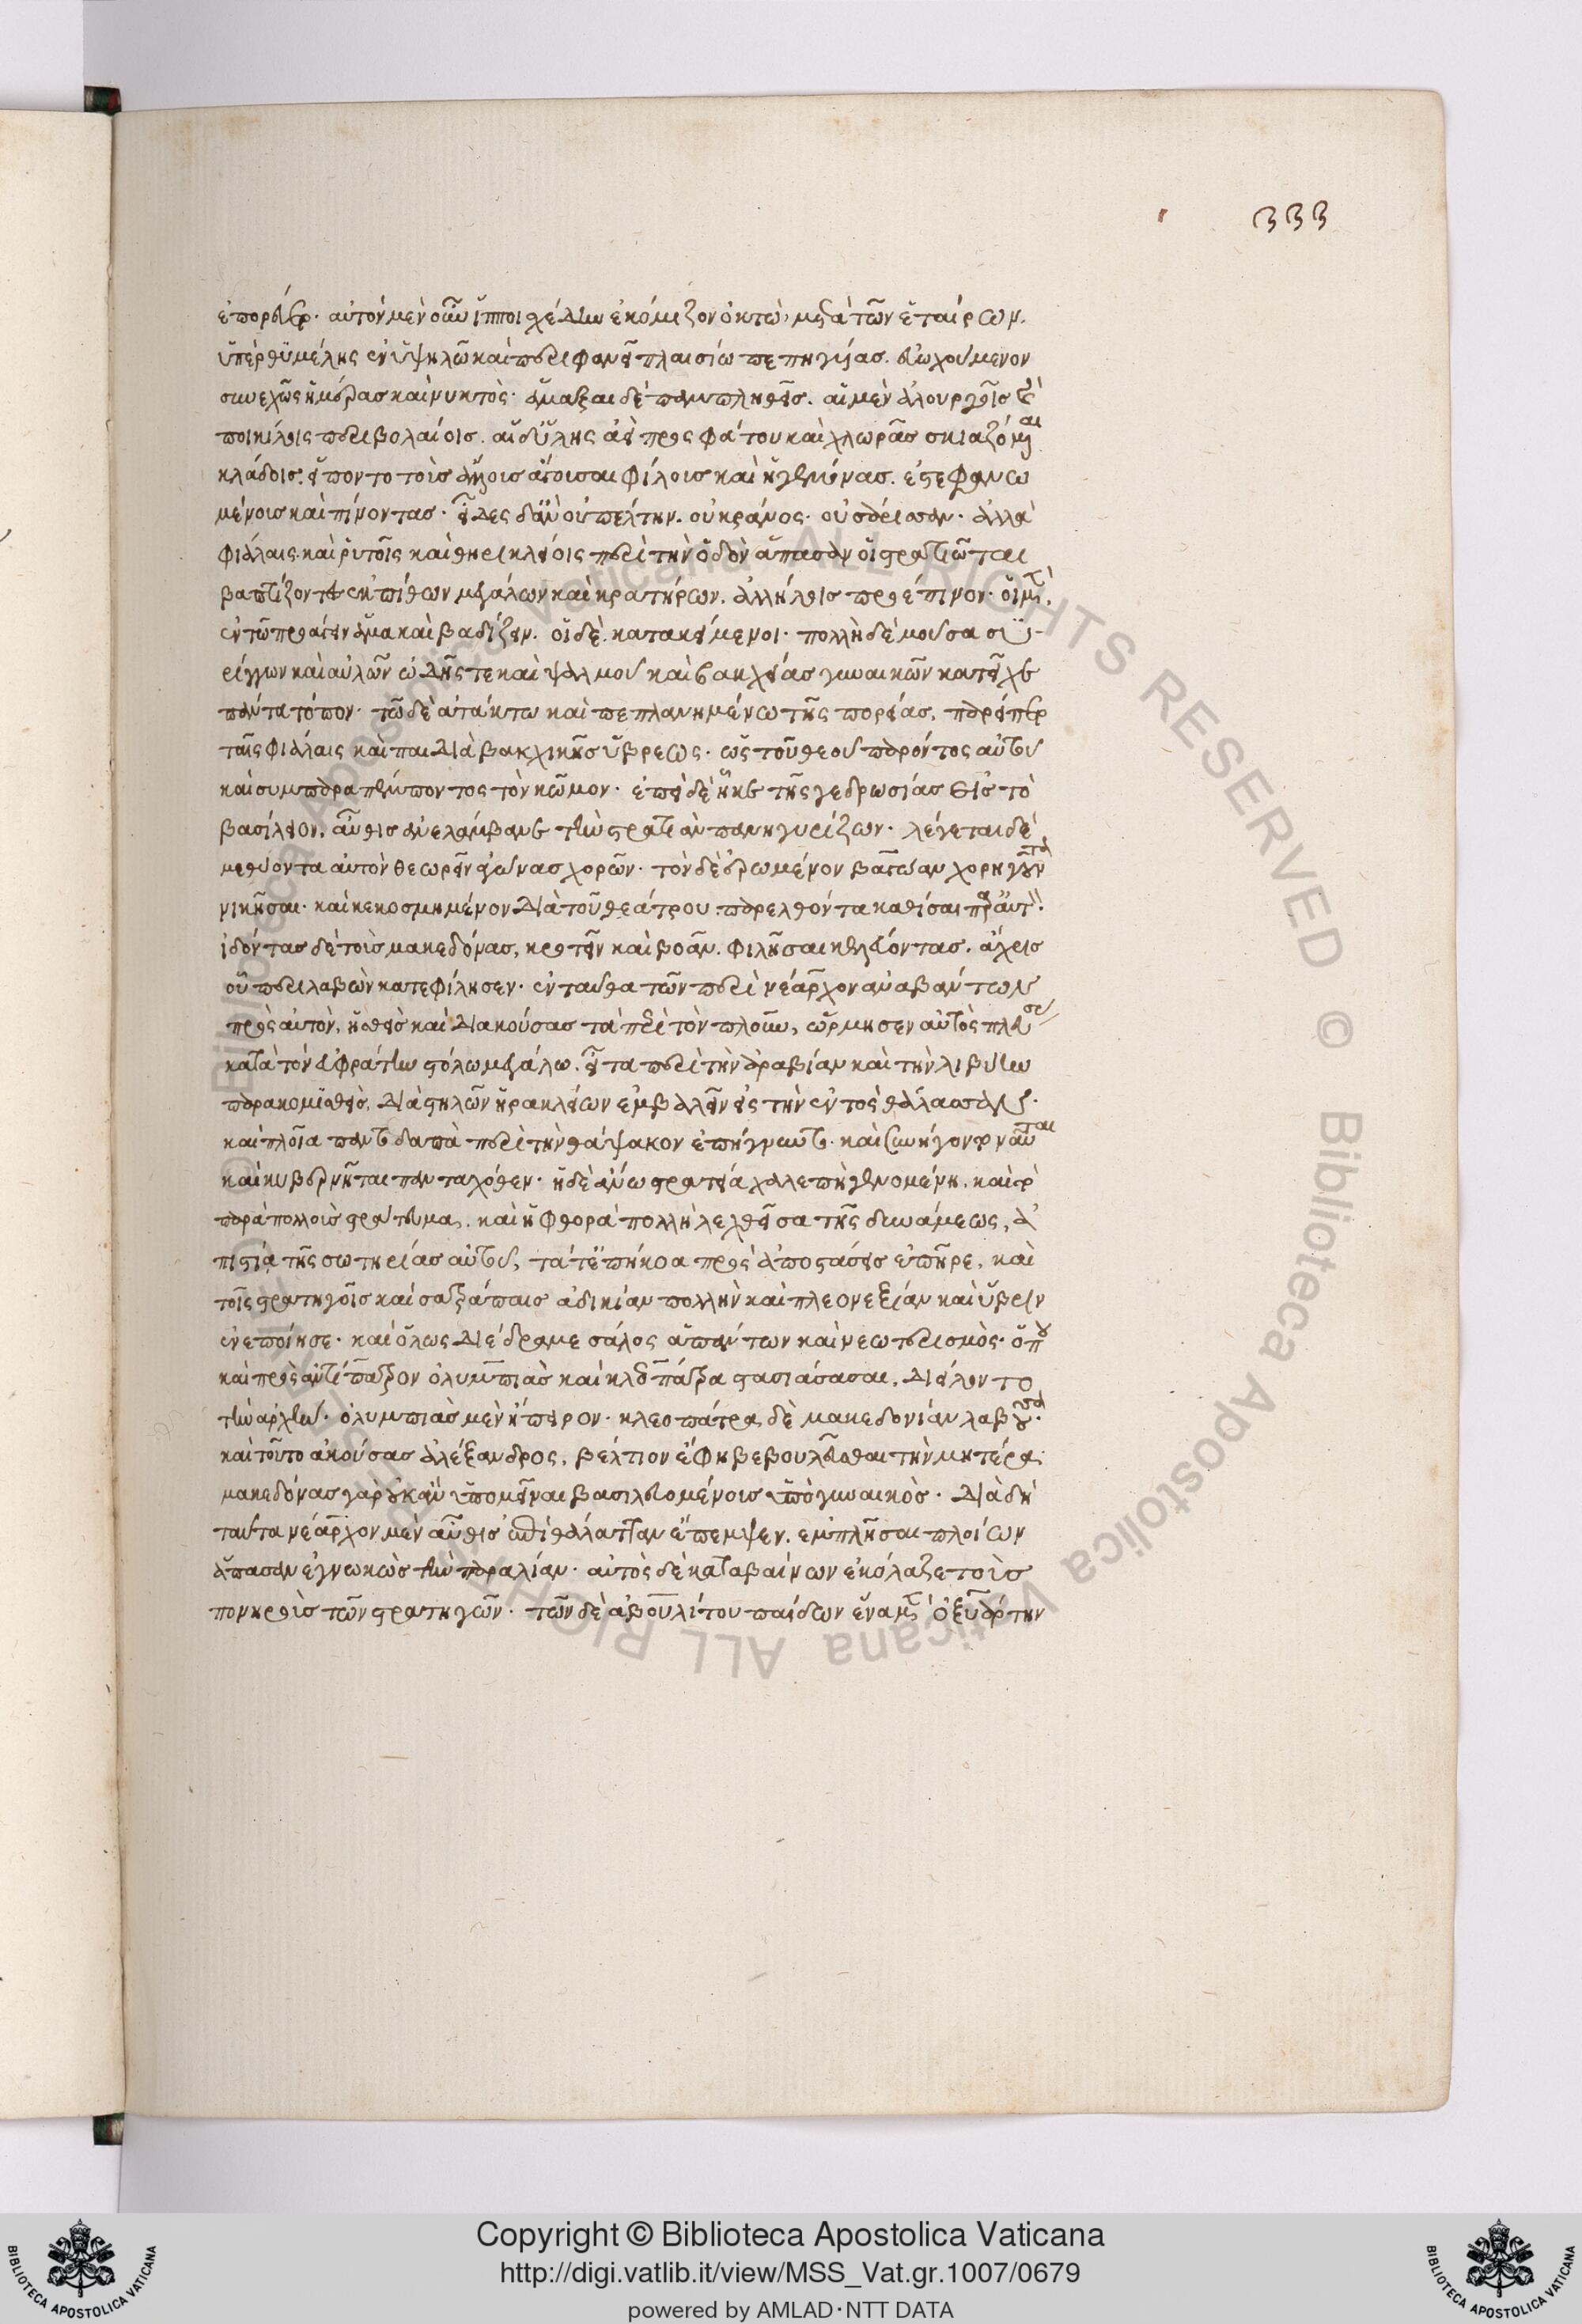 333
ἐπορεύετο. αὐτὸν μὲν οὖν ἵπποι σχέδην ἐκόμιζον ὀκτὼ, μετὰ τῶν ἑταίρων.
ὑπὲρ θυμέλης ἐν ὑψηλῶ καὶ περιφανεῖ πλαισίω πεπηγυίας. εὐωχούμενον
συνεχῶς ἡμέρας καὶ νυκτὸς. ἅμαξαι δὲ παμπληθεῖς. αἱ μὲν ἁλουργοῖς καὶ
ποικίλοις περιβολαίοις. αἱ δ' ὕλης ἀεὶ προσφάτου καὶ χλωρᾶς σκιαζόμεναι
κλάδοις. εἵποντο τοὺς ἄλλους ἄγουσαι φίλους καὶ ἡγεμόνας. ἐστεφανω
μένους καὶ πίνοντας. εἶδες δ' ἂν οὐ πέλτην. οὐ κράνος. οὐ σάρισαν. ἀλλὰ
φιάλαις καὶ ῥυτοῖς καὶ θηρικλείοις περὶ τὴν ὁδὸν ἅπασαν οἱ στρατιῶται
βαπτίζοντες ἐκ πίθων μεγάλων καὶ κρατήρων. ἀλλήλοις προέπινον. οἱ μὲν,
ἐν τῶ προάγειν ἅμα καὶ βαδίζειν. οἱ δὲ. κατακείμενοι. πολλὴ δὲ μοῦσα συ-
ρίγγων καὶ αὐλῶν ὠδῆς τε καὶ ψαλμοῦ καὶ βακχείας γυναικῶν κατεῖχε
πάντα τόπον. τῶ δὲ ἀτάκτω καὶ πεπλανημένω τῆς πορείας, παρείπετο
ταῖς φιάλαις καὶ παιδιὰ βακχικῆς ὕβρεως. ὡς τοῦ θεοῦ παρόντος αὐτοῦ
καὶ συμπαραπέμποντος τὸν κῶμον. ἐπεὶ δὲ ἧκε τῆς γεδρωσίας εἰς τὸ
βασίλειον, αὖθις ἀνελάμβανε τὴν στρατιὰν πανηγυρίζων. λέγεται δὲ
μεθύοντα αὐτὸν θεωρεῖν ἀγῶνας χορῶν. τὸν δὲ ἐρωμένον βαγώαν χορηγοῦντα
νικῆσαι. καὶ κεκοσμημένον διὰ τοῦ θεάτρου παρελθόντα καθίσαι παρ' αὐτὸν.
ἰδόντας δὲ τοὺς μακεδόνας, κροτεῖν καὶ βοᾶν. φιλῆσαι κελεύοντας. ἄχρις
οὗ περιλαβὼν κατεφίλησεν. ἐνταῦθα τῶν περὶ νέαρχον ἀναβάντων
πρὸς αὐτὸν, ἡσθεὶς καὶ διακούσας τὰ περὶ τὸν πλοῦν, ὥρμησεν αὐτὸς πλεύσας
κατὰ τὸν εὐφράτην στόλω μεγάλω. εἶτα περὶ τὴν ἀραβίαν καὶ τὴν λιβύην
παρακομισθεὶς, διὰ στηλῶν ἡρακλείων ἐμβαλεῖν εἰς τὴν ἐντὸς θάλασσαν.
καὶ πλοῖα παντοδαπὰ περὶ τὴν θάψακον ἐπήγνυντο. καὶ συνήγοντο ναῦται
καὶ κυβερνῆται πανταχόθεν. ἡ δὲ ἄνω στρατεία χαλεπὴ γενομένη. καὶ τὸ
παρὰ πολλοὺς τραῦμα. καὶ ἡ φθορὰ πολλὴ λεχθεῖσα τῆς δυνάμεως, ἀ
πιστία τῆς σωτηρίας αὐτοῦ, τά τε ὑπήκοα πρὸς ἀποστάσεις ἐπῆρε, καὶ
τοῖς στρατηγοῖς καὶ σατράπαις ἀδικίαν πολλὴν καὶ πλεονεξίαν καὶ ὕβριν
ἐνεποίησε. καὶ ὅλως διέδραμε σάλος ἁπάντων καὶ νεωτερισμὸς. ὅπου
καὶ πρὸς ἀντίπατρον ὀλυμπιὰς καὶ κλεοπάτρα στασιάσασαι, διείλοντο
τὴν ἀρχήν. ὀλυμπιὰς μὲν ἤπειρον. κλεοπάτρα δὲ μακεδονίαν λαβοῦσα.
καὶ τοῦτο ἀκούσας ἀλέξανδρος, βέλτιον ἔφη βεβουλεῦσθαι τὴν μητέρα.
μακεδόνας γὰρ οὐκ ἂν ὑπομεῖναι βασιλευομένους ὑπὸ γυναικὸς. διὰ δὴ
ταῦτα νέαρχον μὲν αὖθις ἐπὶ θάλατταν ἔπεμψεν. ἐμπλῆσαι πλοίων
ἅπασαν ἐγνωκὼς τὴν παραλίαν. αὐτὸς δὲ καταβαίνων ἐκόλαζε τοὺς
πονηροὺς τῶν στρατηγῶν. τῶν δὲ ἀβουλίτου παίδων ἕνα μὲν ὀξυάρτην
Copyright © Biblioteca Apostolica Vaticana
http://digi.vatlib.it/view/MSS_Vat.gr.1007/0679
powered by AMLAD·NTT DATA